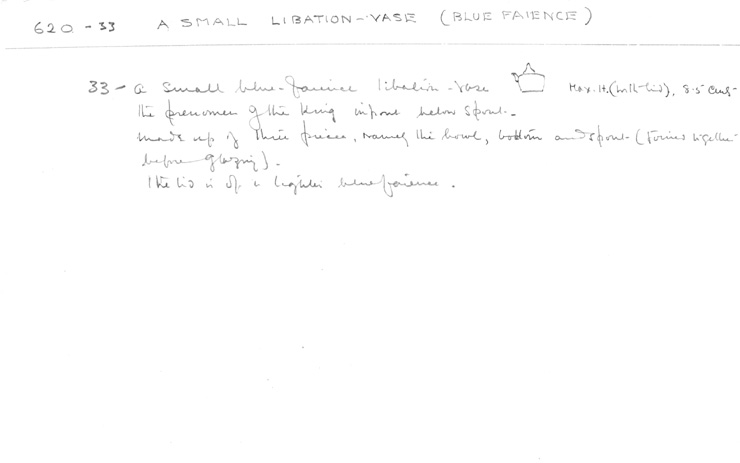 620 - 33 A SMALL LIBATION-VASE (BLUE FAIENCE)
33 - A small blue-faience libation-vase Max. Ht. (with lid), 8.5 cms.
The prenomen of the King in front below spout.
Made up of three pieces, namely the bowl, bottom and spout (joined together
before glazing).
The lid is of a lighter blue faience.